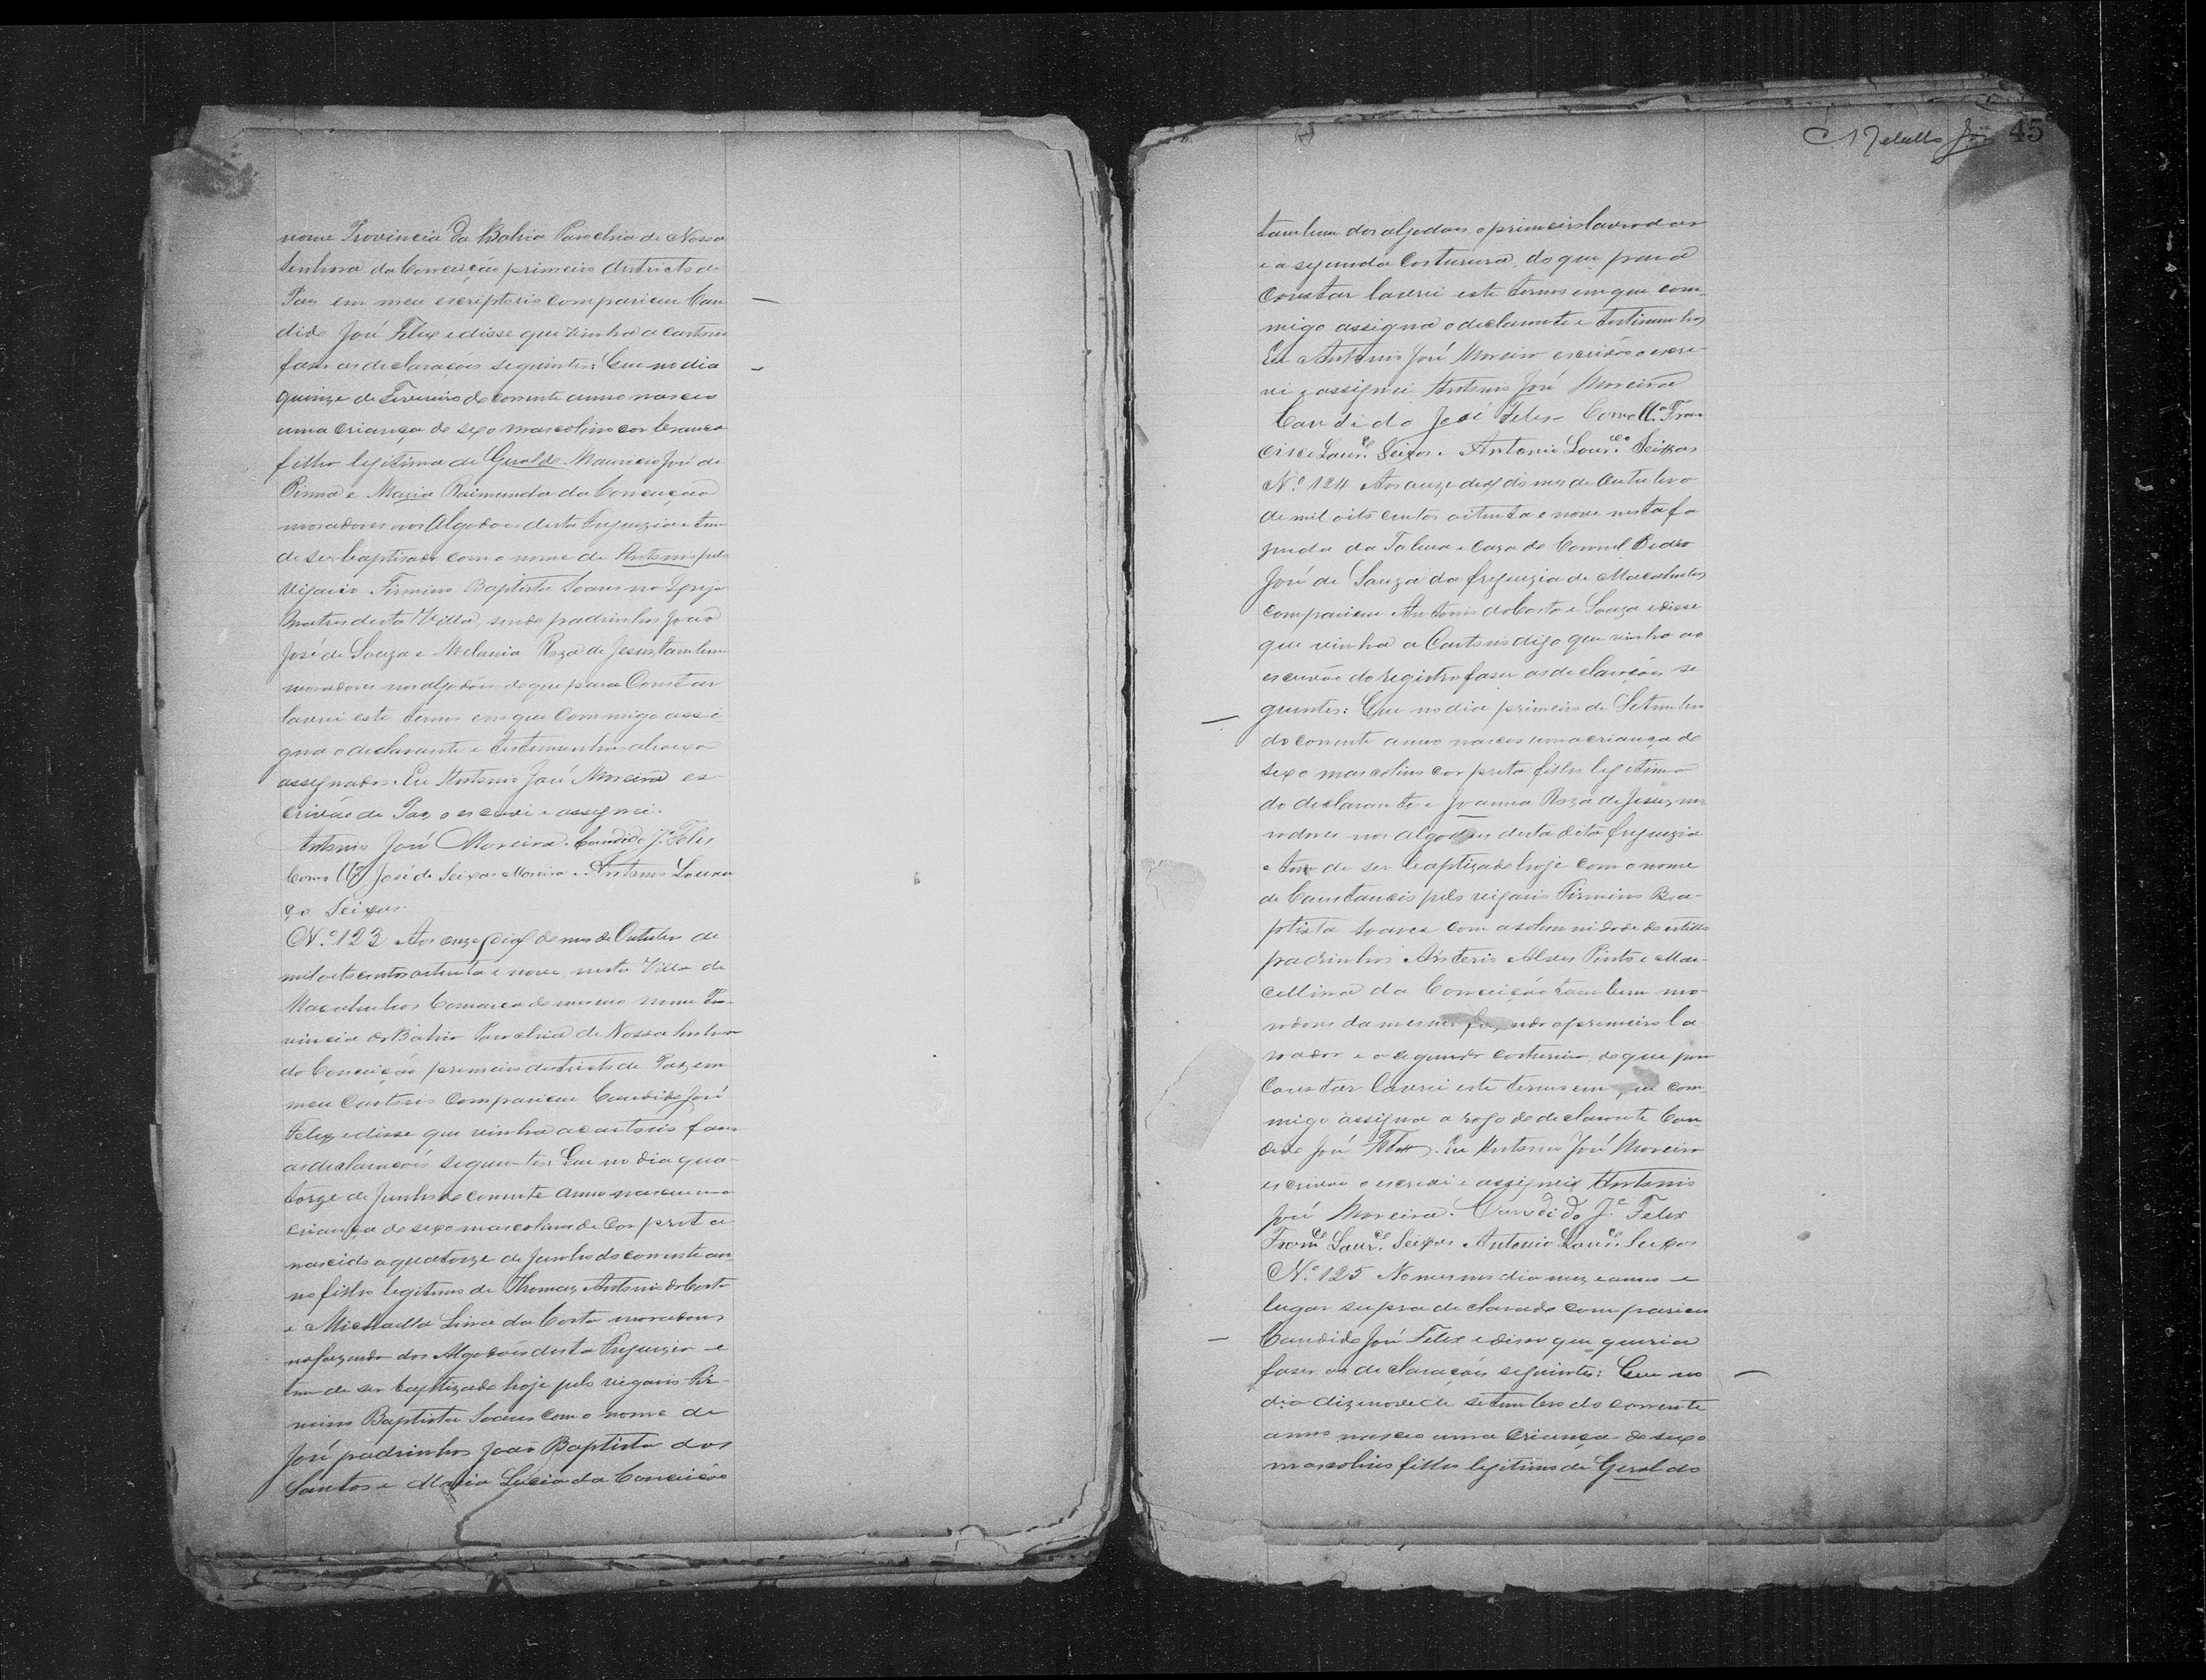 nome Provincia da Bahia Parochia de Nossa
Senhora da Conceição primeiro districto de
Paz em meu escriptorio compariceu Can
dido José Felix e disse que vinha a cartorio
faser as declarações seguintes: Que no dia
quinze de Fevereiro do corrente anno nasceo
uma criança de sexo mascolino cor branca
filho legitimo de Geraldo Mauricio José de
e Maria Raimunda da Conceição
moradores nos Algodoes desta freguzia e tem
de ser baptisado com o nome de Antonio pelo
vigario Firmino Baptista Soares na Igreja
Matris desta Villa, sendo padrinhos João
José de Souza e Melania Roza de Jesus tambem
moradores nos algodões, do que para Constar
laverei este termo em que commigo assi
gna o declarante e testimunhas abaixo
assignados. Eu Antonio José Moreira es
crivão de Paz o escrevi e assignei.
Antonio José Moreira. Candido J. Felis
José de Seixas Moreira. Antonio Louren
ço Seixas
N.º 123 Aos onze dias do mes de Outubro de
mil oito centos oitenta e nove, nesta Villa de
Macahubas Comarca do mesmo nome Pro
vincia da Bahia Parochia de Nossa Senhora
da Conceição primeiro districto de Paz, em
meu Cartorio compariceu Candido José
Felix, e disse que vinha a cartorio faser
as declaracois seguintes: Que no dia qua
torze de Junho do corrente anno nasceu uma
criança de sexo mascolino de Cor preta
nascido a quatorze de Junho do corrente an
no filho legitimo de Thomaz Antonio da Costa
e Michaella Lina da Costa moradores
na fazenda dos Algodões desta Freguizia e
tem de ser baptizado hoje pelo vigario Fir
mino Baptista Soares com o nome de
José padrinhos João Baptista dos
Santos e Maria Lucia da Conceicão
45
tambem dos algodoes o primeiro lavrador
e a segunda Costureira, do que para
Constar laverei este termo em que com
migo assigna o declarante e testimunhas
Eu Antonio José Moreira escrivão o escre
vi e assignei Antonio José Moreira
Candido José Felis Fran
cisco Lour.ço Seixas. Antonio Lour.ço Seixas
N.º 124 Aos onze dias do mes de Outubro
de mil oito centos oitenta e nove nesta fa
zenda da e caza do Coronel Pedro
José de Souza da freguizia de Macahubas
compariceu Antonio da Costa e Souza e disse
que vinha a Cartorio digo que vinha ao
escrivão do registro faser as declaraçoes se
guintes: Que no dia primeiro de Setembro
do corrente anno nasceo uma criança de
sexo mascolino cor preta filho legitimo
do declarante e Joanna Roza de Jesus, mo
radores nos algodoes desta dita freguizia
e tem de ser baptizado hoje com o nome
de Constancio pelo vigario Firmino Ba
ptista Soares com a solemnidade do estillo
padrinhos Asterio Alves Pinto e Mar
cellina da Conceição tambem mo
radores da mesma fazenda o primeiro la
vrador e a segunda costureira, do que para
Constar laverei este termo em que com
migo assigna a rogo do declarante Can
dido José Felix. Eu Antonio José Moreira
escrivão o escrevi e assignei Antonio
José Moreira. Candido J.e Felix
Fran.co Lour.ço Seixas Antonio Lour.ço Seixas
N.º 125 No mesmo dia mez e anno e
lugar supra declarado compariceu
Candido José Felix e disse que queria
faser as declarações seguintes: Que no
dia dizenove de setembro do corrente
anno nasceo uma Criança de sexo
mascolino filho legitimo de Geraldo